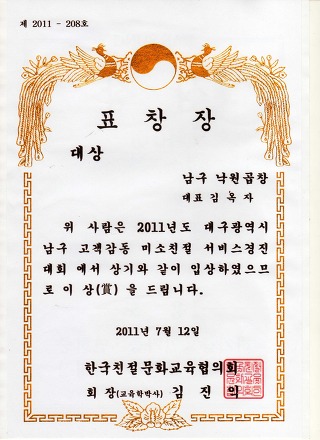 제 2011 - 208호
표 창 장
대상
남구 낙원곱창
대표 김 옥 자
위 사람은 2011년도 대구광역시
남구 고객감동 미소친절 서비스경진
대회 에서 상기와 같이 입상하였으므
로 이 상(賞) 을 드립니다.
2011년 7월 12일
한국친절문화교육협의회
회 장(교육학박사) 김 진 익